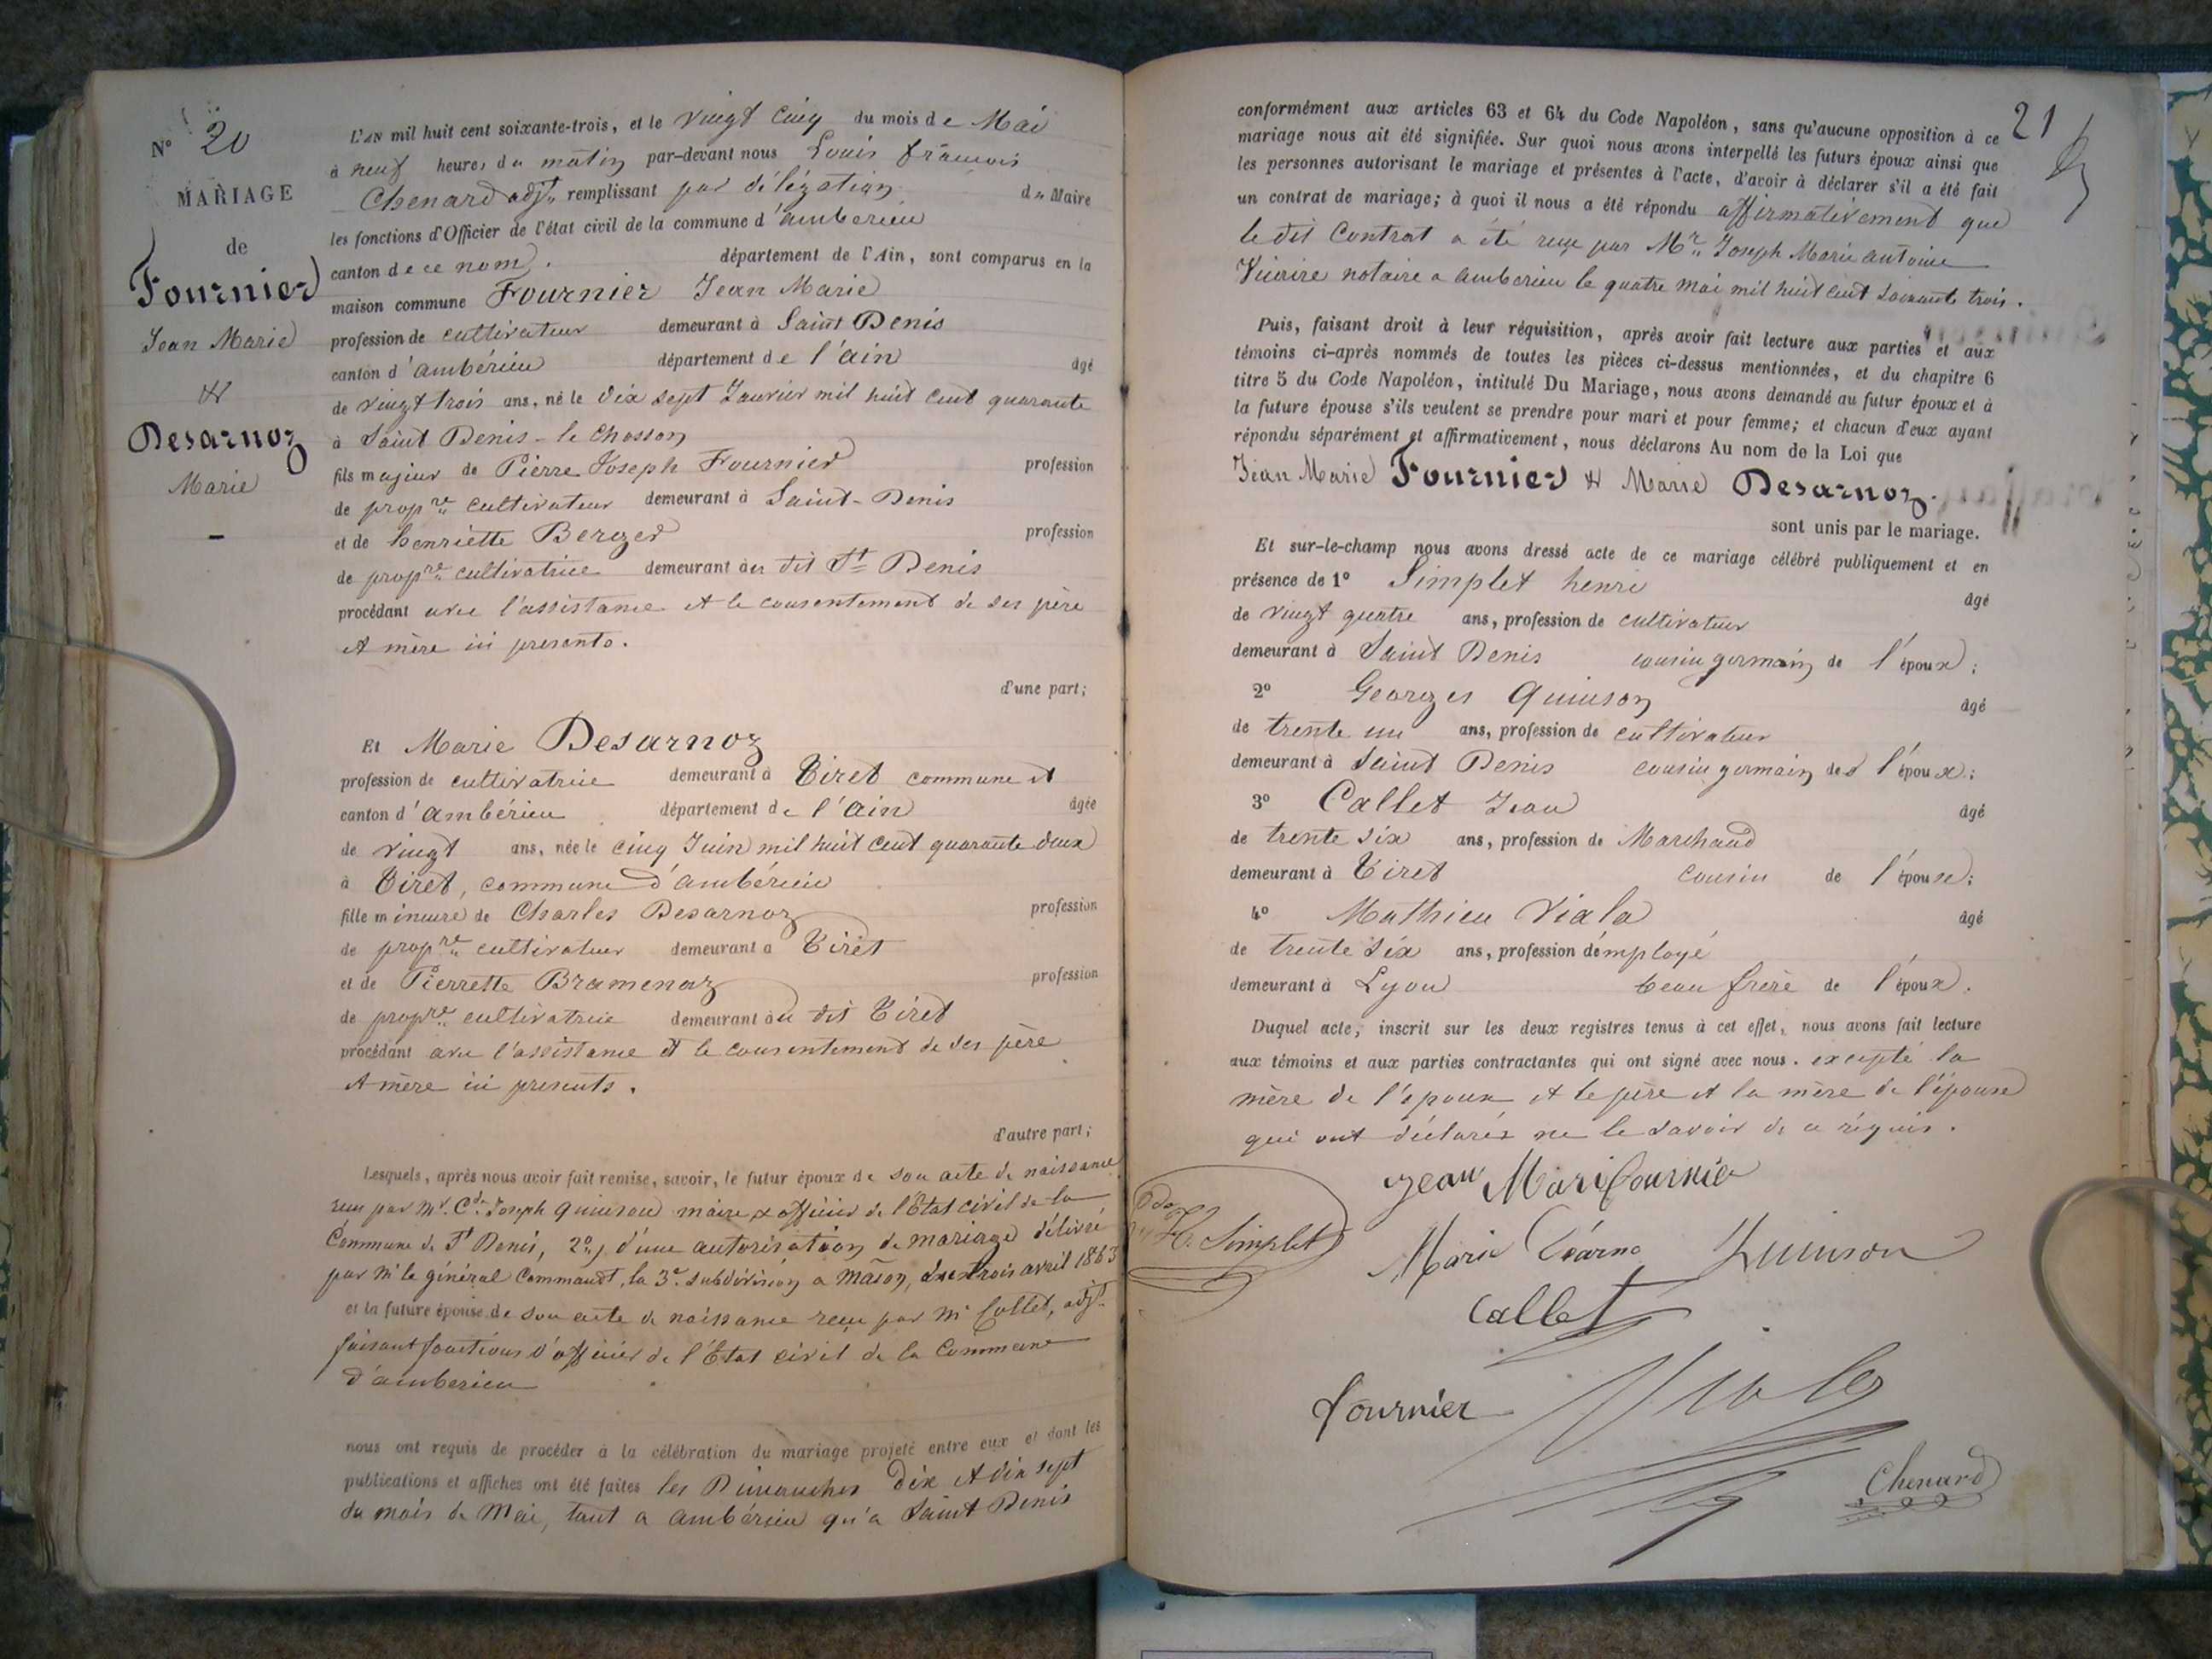 N° 20
MARIAGE
de
Fournier
Jean Marie
&
Desarnoz
Marie
L'AN mil huit cent soixante-trois, et le vingt cinq du mois de Mai
à neuf heures du matin par-devant nous Louis françois
Chenard adjt remplissant par délégation du Maire
les fonctions d'Officier de l'état civil de la commune d'ambérieu
canton de ce nom. département de l'Ain, sont comparus en la
maison commune Fournier Jean Marie
profession de cultivateur demeurant à Saint Denis
canton d'ambérieu département de l'ain âgé
de vingt trois ans, né le dix sept Janvier mil huit cent quarante
à Saint Denis-le Chosson
fils majeur de Pierre Joseph Fournier profession
de propre cultivateur demeurant à Saint-Denis
et de henriette Berger profession
de propre cultivatrice demeurant au dit St Denis
procédant avec l'assistance et le consentement de ses père
et mère ici presents.
d'une part;
Et Marie Desarnoz
profession de cultivatrice demeurant à Tiret commune et
canton d'ambérieu département de l'ain âgée
de vingt ans, née le cinq Juin mil huit cent quarante deux
à Tiret, commune d'ambérieu
fille mineure de Charles Desarnoz profession
de propre cultivateur demeurant a Tiret
et de Pierrette Bramenoz profession
de propre cultivatrice demeurant au dit Tiret
procédant avec l'assistance et le consentement de ses père
et mère ici presents.
d'autre part;
Lesquels, après nous avoir fait remise, savoir, le futur époux de son acte de naissance
reçu par Mr. Cde Joseph quinson maire & officier de l'État civil de la
Commune de St Denis, 2° d'une autorisation de mariage délivré
par Mr le général Commandt la 3e subdivision a Mâcon, trois avril 1863
et la future épouse de son acte de naissance reçu par Mr Collet, adjt
faisant fonctions d'officier de l'État civil de la Commune
d'amberieu
nous ont requis de procéder à la célébration du mariage projeté entre eux et dont les
publications et affiches ont été faites les Dimanches dix et dix sept
du mois de Mai, tant a ambérieu qu'a Saint Denis
21
conformément aux articles 63 et 64 du Code Napoléon, sans qu'aucune opposition à ce
mariage nous ait été signifiée. Sur quoi nous avons interpellé les futurs époux ainsi que
les personnes autorisant le mariage et présentes à l'acte, d'avoir à déclarer s'il a été fait
un contrat de mariage; à quoi il nous a été répondu affirmativement que
le dit Contrat a été reçu par Mre Joseph Marie antoine
notaire a amberieu le quatre mai mil huit cent soixante trois.
Puis, faisant droit à leur réquisition, après avoir fait lecture aux parties et aux
témoins ci-après nommés de toutes les pièces ci-dessus mentionnées, et du chapitre 6
titre 5 du Code Napoléon, intitulé Du Mariage, nous avons demandé au futur époux et à
la future épouse s'ils veulent se prendre pour mari et pour femme; et chacun d'eux ayant
répondu séparément et affirmativement, nous déclarons Au nom de la Loi que
Jean Marie Fournier & Marie Desarnoz.
sont unis par le mariage.
Et sur-le-champ nous avons dressé acte de ce mariage célébré publiquement et en
présence de 1° Simplet henri âgé
de vingt quatre ans, profession de cultivateur
demeurant à Saint Denis cousin germain de l'époux;
2° Georges Quinson âgé
de trente un ans, profession de cultivateur
demeurant à Saint Denis cousin germain de l'époux;
3° Callet Jean âgé
de trente six ans, profession de Marchand
demeurant à Tiret cousin de l'épouse;
4° Mathieu Viala âgé
de trente six ans, profession d'employé
demeurant à Lyon beau frère de l'époux.
Duquel acte, inscrit sur les deux registres tenus à cet effet, nous avons fait lecture
aux témoins et aux parties contractantes qui ont signé avec nous. excepté la
mère de l'époux et le père et la mère de l'épouse
qui ont déclarés ne le savoir de ce réquis.
Jean Mari fournier
H. Simplet
Marie Quinson
Callet
fournier Viala
Chenard